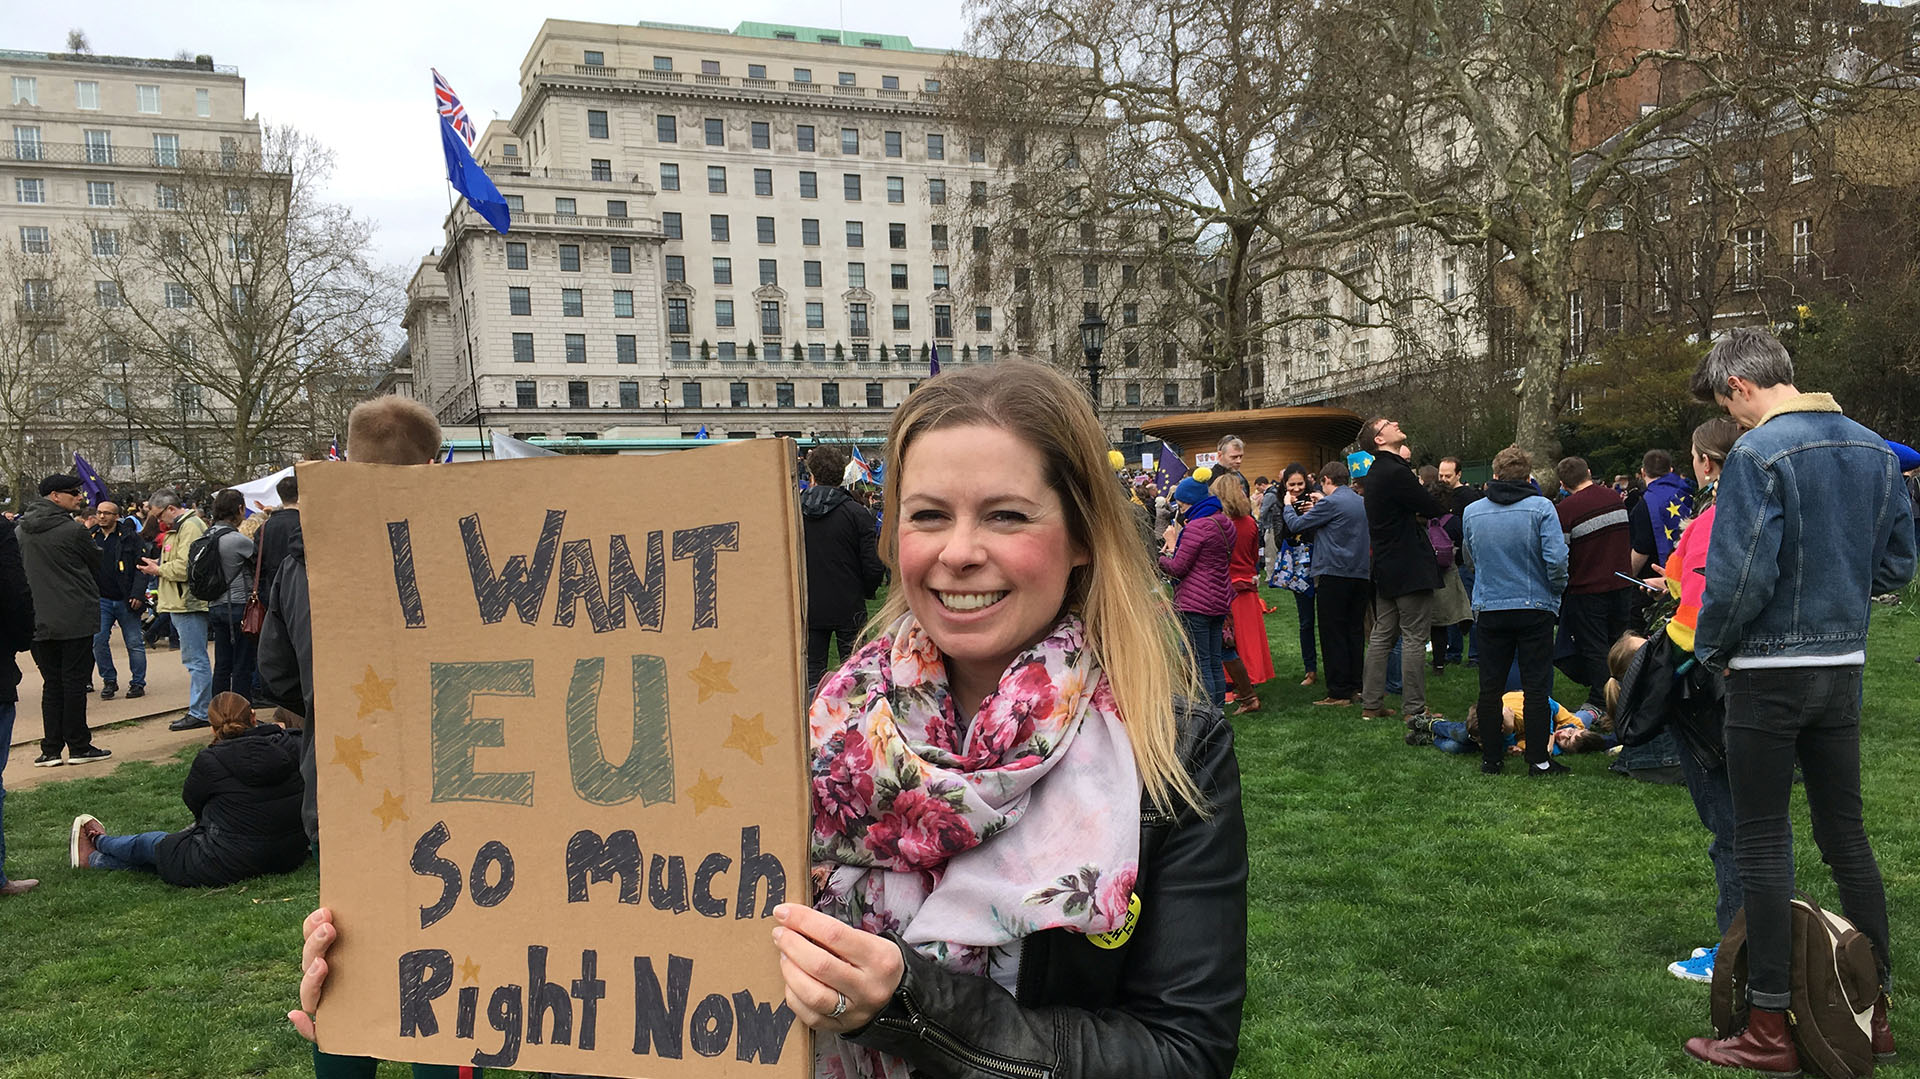 I WANT
EU
So Much
Right Now